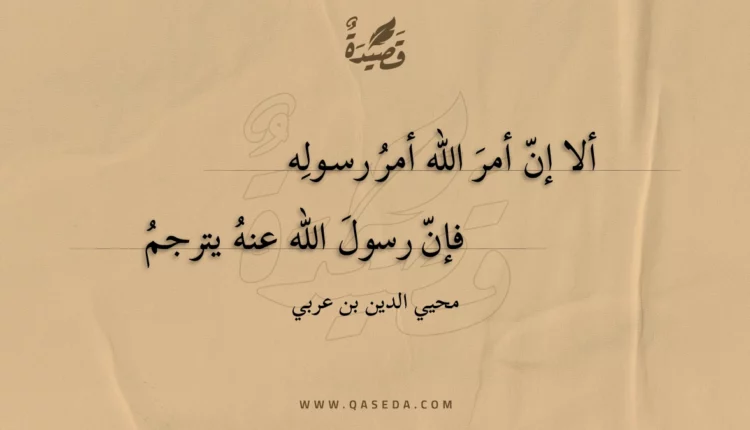 قَصِيْدَةٌ
ألا إنّ أمرَ الله أمرُ رسولِه
فإنّ رسولَ الله عنهُ يترجمُ
محيي الدين بن عربي
WWW.QASEDA.COM